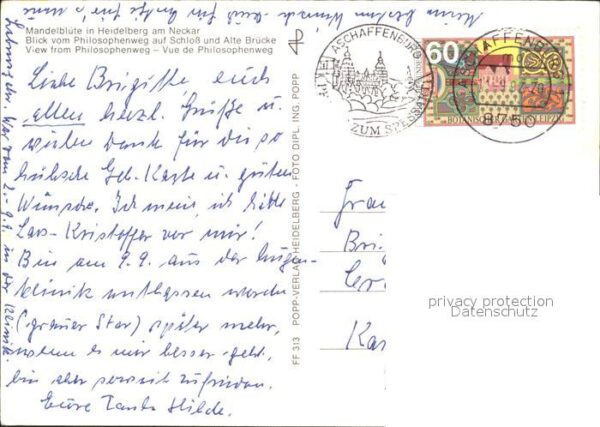 Mandelblüte in Heidelberg am Neckar
Blick vom Philosophenweg auf Schloß und Alte Brücke
View from Philosophenweg – Vue de Philosophenweg
Liebe Brigitte euch
allen herzl. Grüße u.
vielen Dank für die so
hübsche Geb. Karte u. guten
Wünsche. Ich mein ich hätte
Lars-Kristoffer vor mir!
Bin am 9.9. aus der Augen-
klinik entlassen worden
(grauer Star) später mehr,
wenn es mir besser geht,
bin aber soweit zufrieden.
Eure Tante Hilde.
vom 2.-9.9. in der Klinik.
FF 313 POPP-VERLAG HEIDELBERG - FOTO DIPL. ING. POPP
ASCHAFFENBURG
ZUM
60
ASCHAFFENBURG
8750
BOTANISCHER GARTEN LEIPZIG
Frau
Bri
privacy protection
Datenschutz